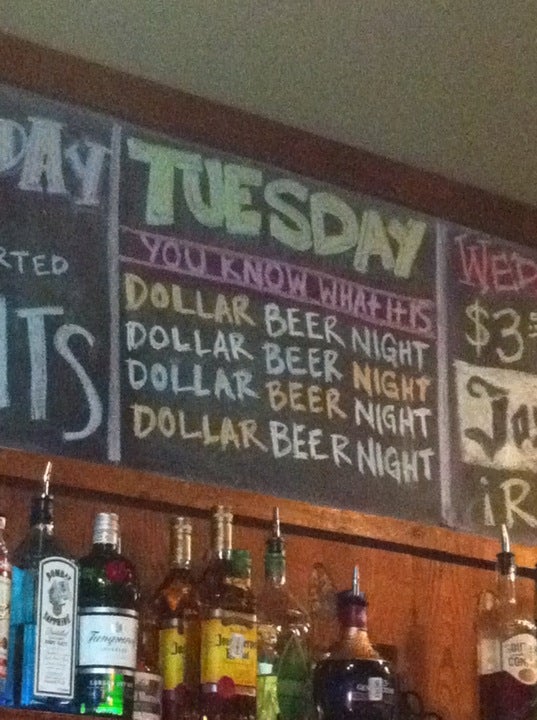 DAY
RTED
ITS
TUESDAY
YOU KNOW WHAT IT IS
DOLLAR BEER NIGHT
DOLLAR BEER NIGHT
DOLLAR BEER NIGHT
DOLLAR BEER NIGHT
WED
$3
iR
BOMBAY
SAPPHIRE
Tanqueray